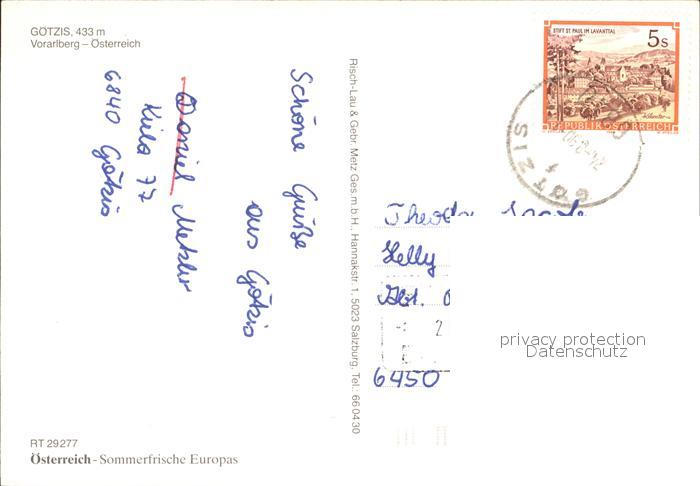 GÖTZIS, 433 m
Vorarlberg – Österreich
Schöne Grüße
aus Götzis
Daniel Metzler
77
6840 Götzis
RT 29277
Österreich - Sommerfrische Europas
Risch-Lau & Gebr. Metz Ges.m.b.H., Hannakstr. 1, 5023 Salzburg, Tel.: 66 04 30
STIFT ST. PAUL IM LAVANTTAL
5 s
REPUBLIK ÖSTERREICH
GÖTZIS
Helly
Abt.
2
6450
privacy protection
Datenschutz